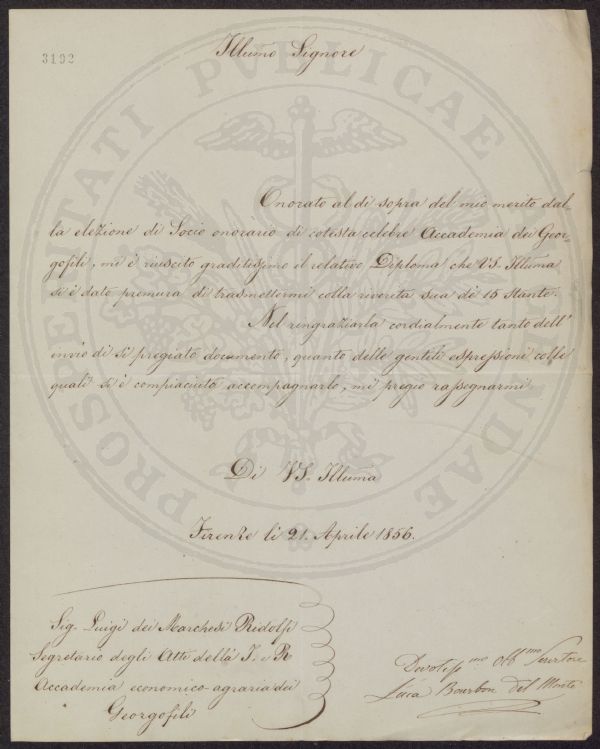 3192
Illumo Signore
Onorato al di sopra del mio merito dal-
la elezione di Socio onorario di cotesta celebre Accademia dei Geor-
gofili, mi è riuscito graditissimo il relativo Diploma che VS. Illuma
si è dato premura di trasmettermi colla riverita sua de' 15 stante.
Nel ringraziarla cordialmente tanto dell'
invio di sì pregiato documento, quanto delle gentili espressioni colle
quali si è compiaciuto accompagnarlo, mi pregio rassegnarmi
Di VS. Illuma
Firenze li 21. Aprile 1856.
Sig. Luigi dei Marchesi Ridolfi
Segretario degli Atti della I. e R
Accademia economico-agraria dei
Georgofili
Devotiss.mo Obb.mo Servitore
Luca Bourbon Del Monte
PROSPERITATI PVBLICAE AVGENDAE